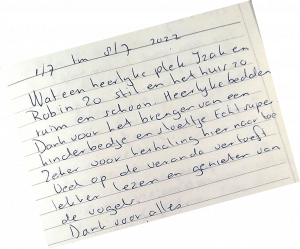 4/7 tm 8/7 2022
Wat een heerlijke plek Izak en
Robin. Zo stil en het huis zo
ruim en schoon. Heerlijke bedden
Dank voor het brengen van een
kinderbedje en stoeltje. Echt super
Zeker voor herhaling hier naar toe
Veel op de veranda vertoeft
lekker lezen en genieten van
de vogels.
Dank voor alles.